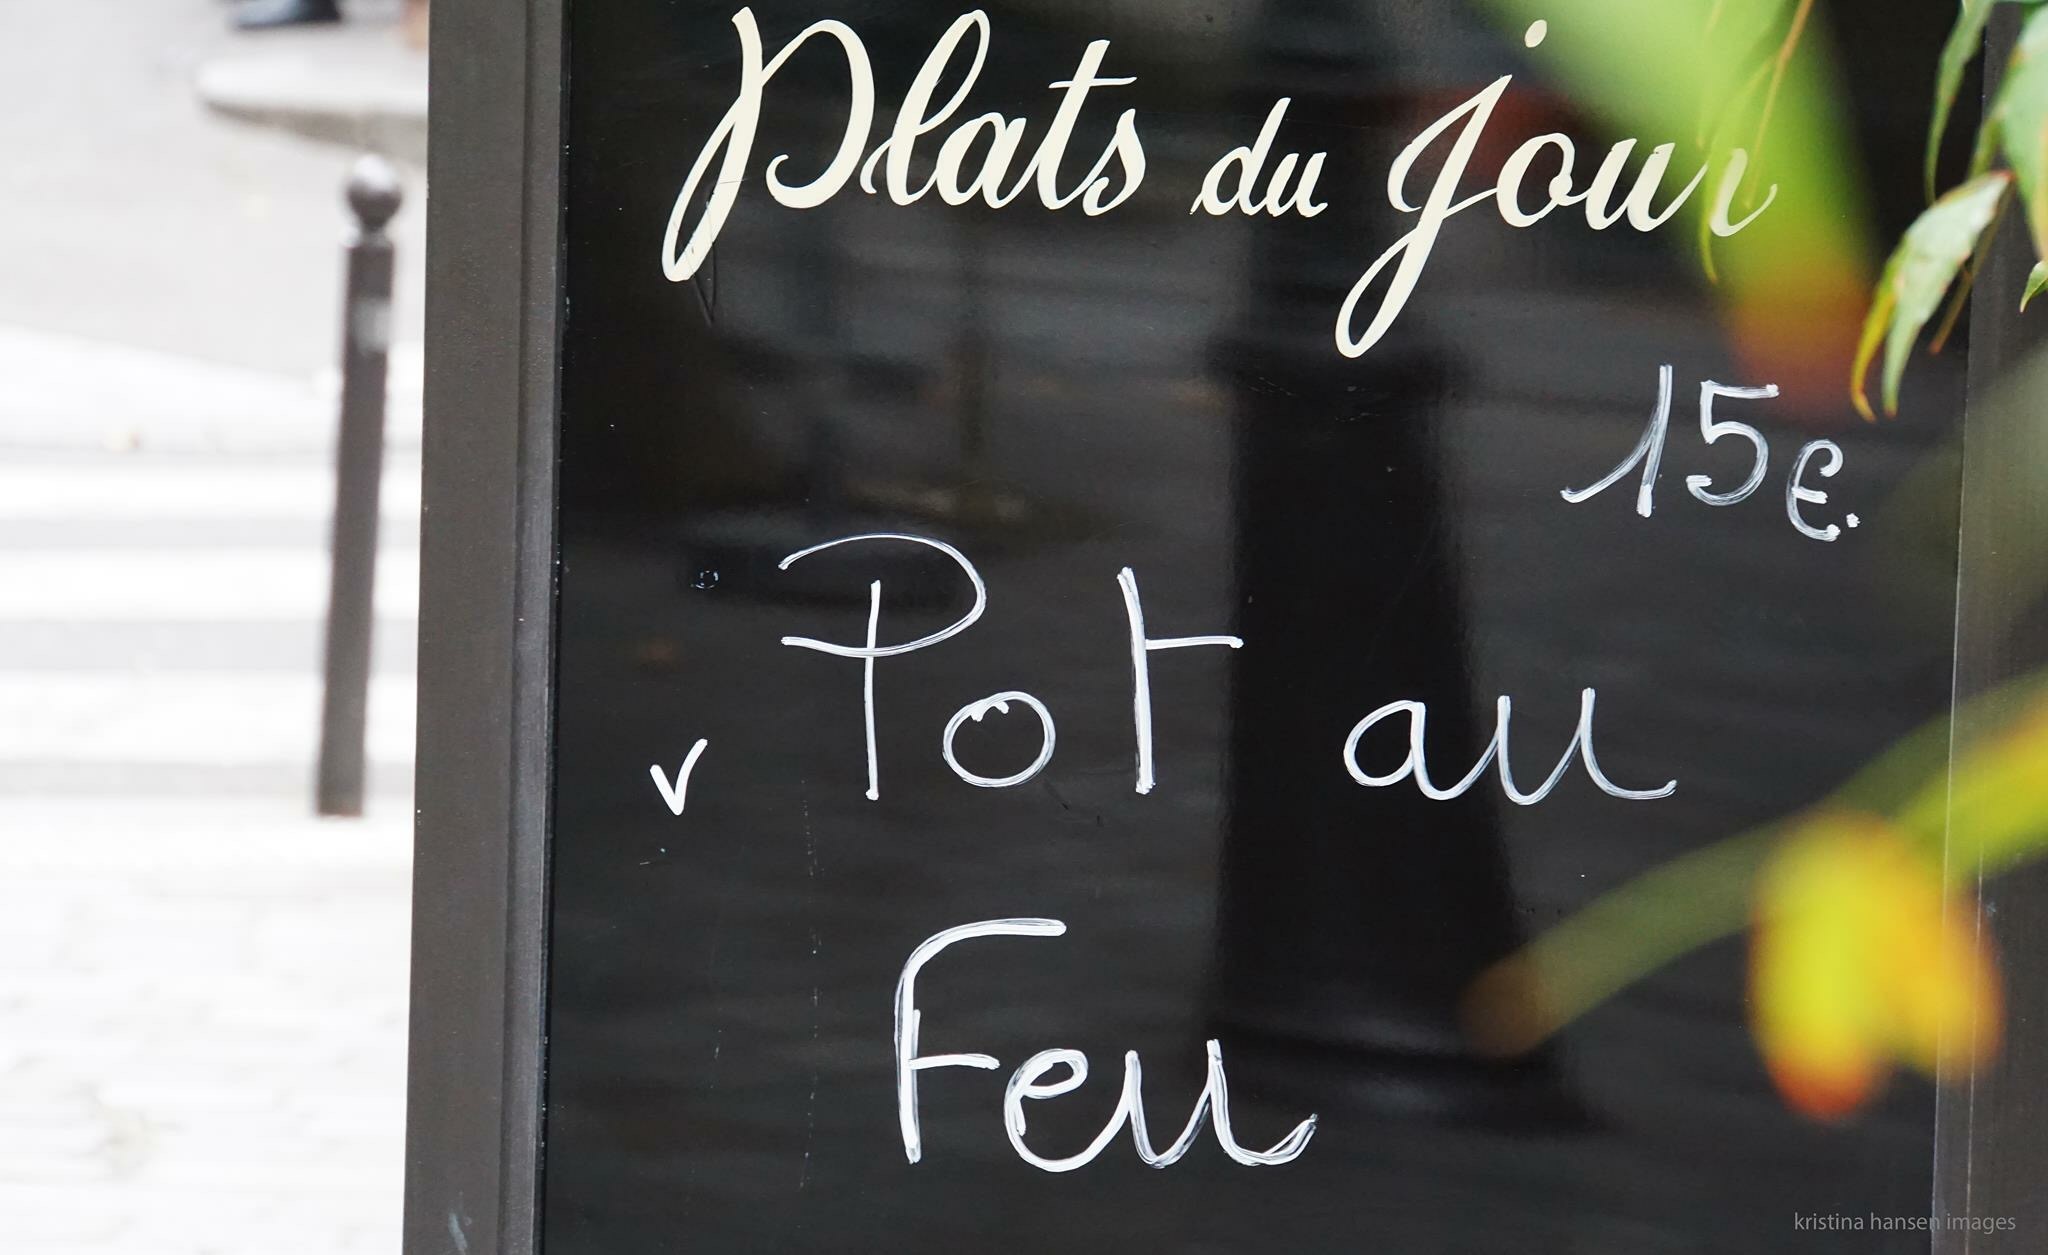 Plats du jour
15€.
✓ Pot au
Feu
kristina hansen images